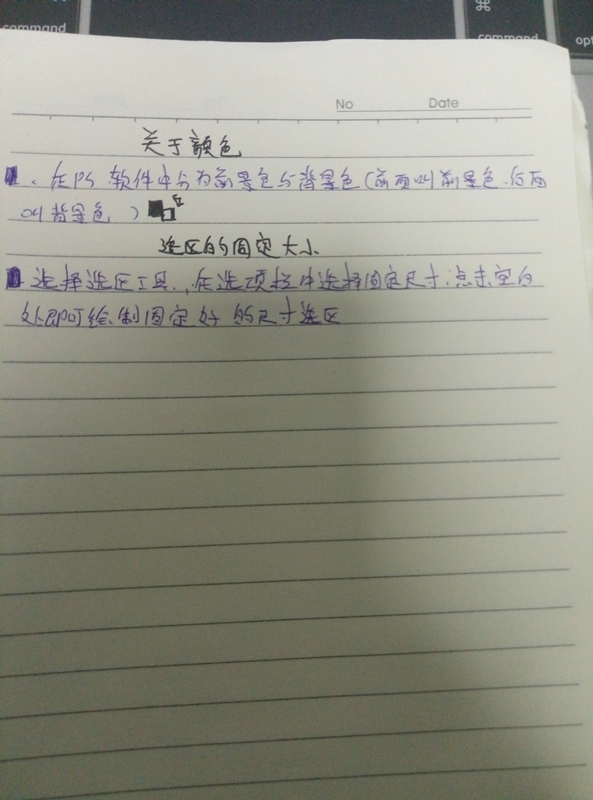 command
⌘
command
opt
No
Date
关于颜色
1、在PS软件中分为前景色与背景色(前面叫前景色.后面
叫背景色 )
选区的固定大小
选择选区工具.,在选项栏中选择固定尺寸.点击空白
处即可绘制固定好的尺寸选区